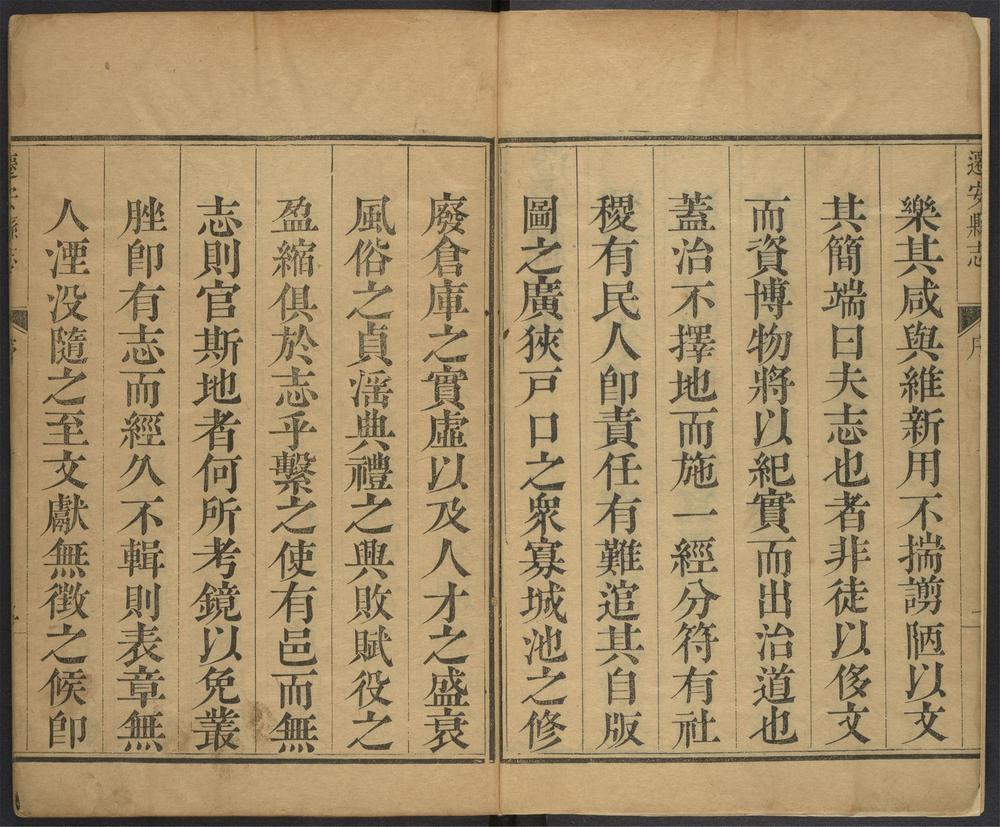 遷安縣志
序
一
樂其咸與維新用不揣謭陋以文
其簡端曰夫志也者非徒以侈文
而資博物將以紀實而出治道也
蓋治不擇地而施一經分符有社
稷有民人即責任有難逭其自版
圖之廣狹戶口之衆寡城池之修
廢倉庫之實虛以及人才之盛衰
風俗之貞滛典禮之興敗賦役之
盈縮俱於志乎繫之使有邑而無
志則官斯地者何所考鏡以免叢
脞即有志而經久不輯則表章無
人湮没隨之至文獻無徵之候即
遷安縣志